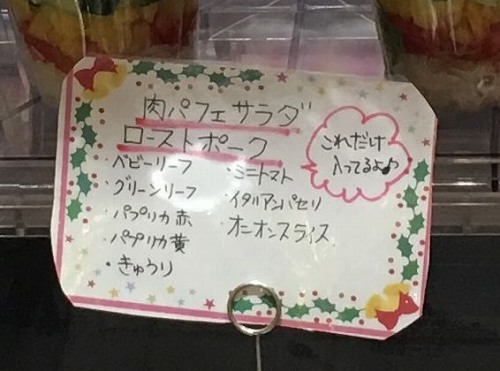 肉パフェサラダ
ローストポーク
・ベビーリーフ
・グリーンリーフ
・パプリカ赤
・パプリカ黄
・きゅうり
・ミニトマト
・イタリアンパセリ
・オニオンスライス
これだけ
入ってるよ♪